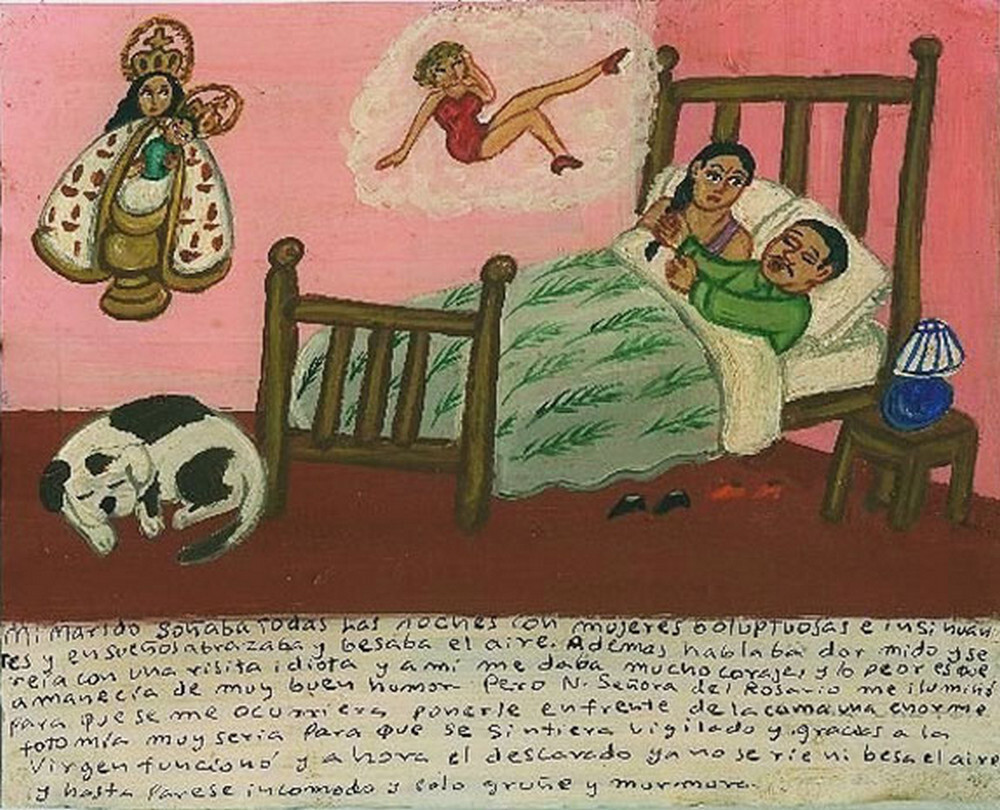 Mi marido soñaba todas las noches con mujeres boluptuosas e insinuan
tes y en sueños abrazaba y besaba el aire. Ademas hablaba dormido y se
reía con una risita idiota y a mi me daba mucho coraje, y lo peor es que
amanecía de muy buen humor. Pero N. Señora del Rosario me iluminó
para que se me ocurriera ponerle enfrente de la cama una enorme
foto mía muy seria para que se sintiera vigilado y gracias a la
Virgen funcionó y ahora el descarado ya no se rie ni besa el aire
y hasta parese incomodo y solo gruñe y murmora.